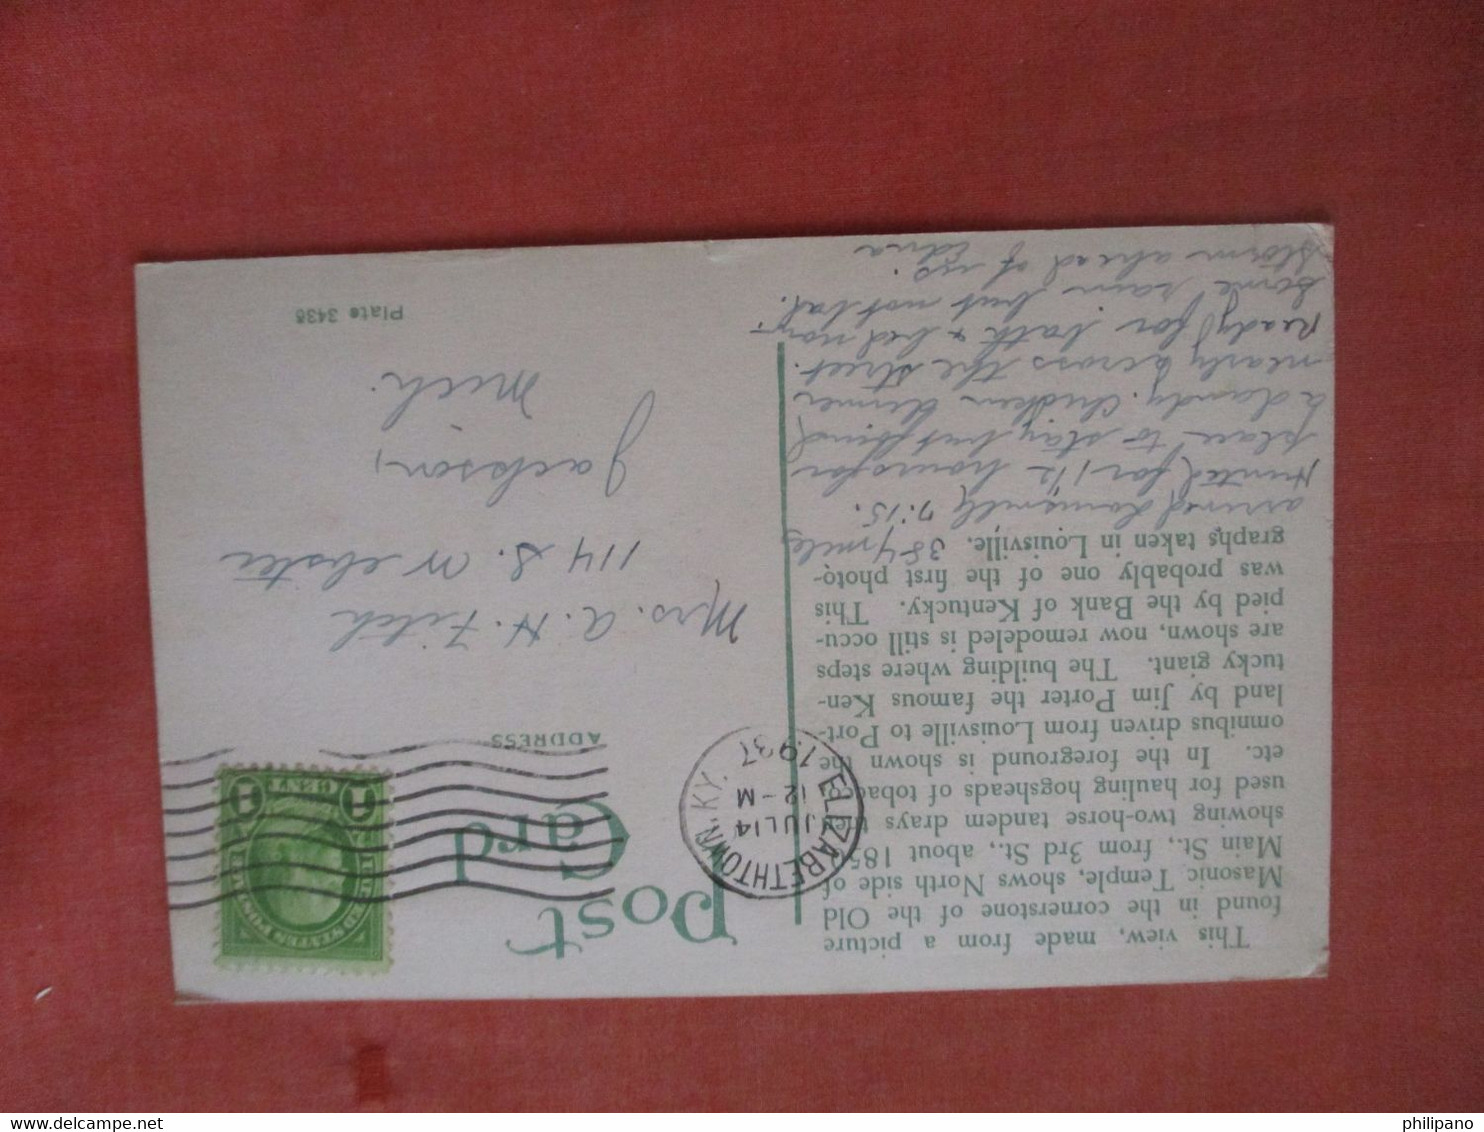 This view, made from a picture
found in the cornerstone of the Old
Masonic Temple, shows North side of
Main St., from 3rd St., about 185
showing two-horse tandem drays
used for hauling hogsheads of tobacco,
etc. In the foreground is shown the
omnibus driven from Louisville to Port-
land by Jim Porter the famous Ken-
tucky giant. The building where steps
are shown, now remodeled is still occu-
pied by the Bank of Kentucky. This
was probably one of the first photo-
graphs taken in Louisville.
384 miles
arrived Louisville 7:15.
Hunted for 1 1/2 hours for
place to stay but find
a dandy. Chicken dinner
nearly across the street.
Ready for bath & bed now.
Some rain but not bad.
Storm ahead of us.
Edna
Post
Card
ADDRESS
ELIZABETHTOWN, KY.
JUL 14
12-M
1937
UNITED STATES POSTAGE
1 1
Mrs. A. H. Fitch
114 S. Webster
Jackson,
Mich.
Plate 3438
philipano